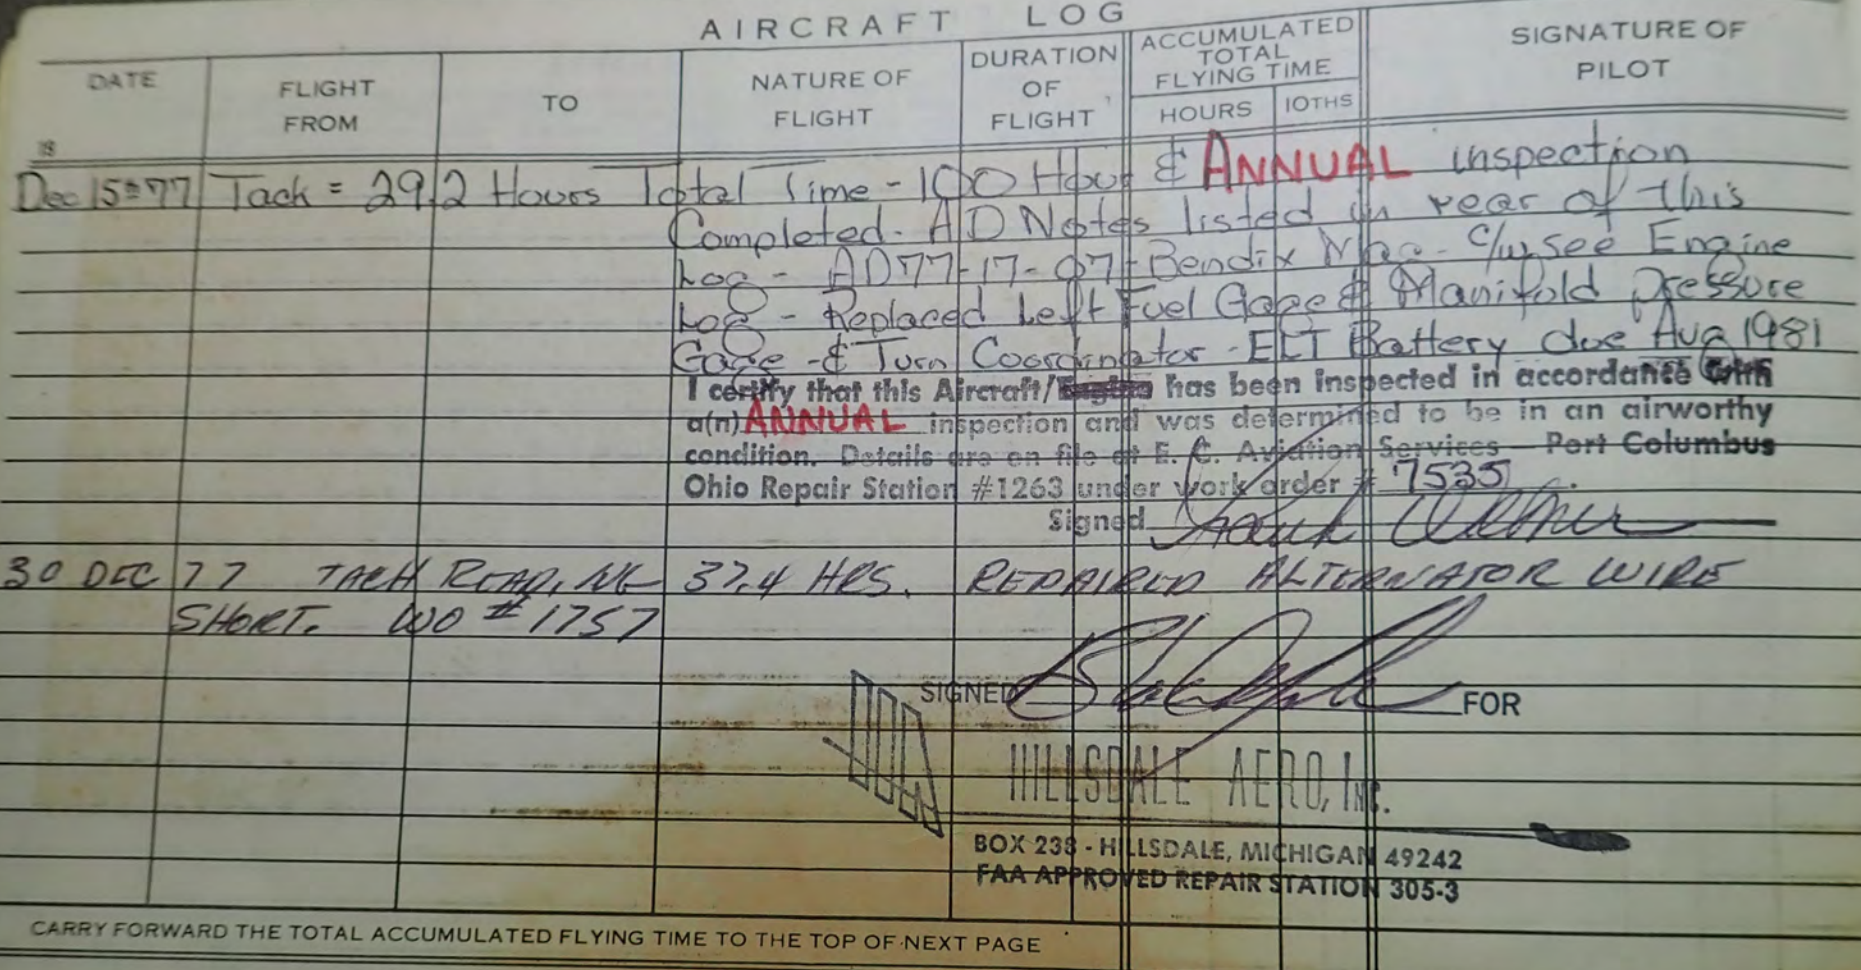 AIRCRAFT LOG
DATE
FLIGHT FROM
TO
NATURE OF FLIGHT
DURATION OF FLIGHT
ACCUMULATED TOTAL FLYING TIME
HOURS
10THS
SIGNATURE OF PILOT
19
Dec 15 = 77 Tack = 29.2 Hours Total Time - 100 Hour & ANNUAL inspection
Completed. AD Notes listed in rear of this
Log - AD 77-17-07 Bendix Mag - C/W see Engine
Log - Replaced Left Fuel Gage & Manifold Pressure
Gage - & Turn Coordinator - ELT Battery due Aug 1981
I certify that this Aircraft/Engine has been inspected in accordance with
a(n) ANNUAL inspection and was determined to be in an airworthy
condition. Details are on file at E. C. Aviation Services Port Columbus
Ohio Repair Station #1263 under work order # 7535 .
Signed
30 DEC 77 TACH READING 37.4 HRS. REPAIRED ALTERNATOR WIRE
SHORT. WO # 1757
SIGNED FOR
HILLSDALE AERO, INC.
BOX 238 - HILLSDALE, MICHIGAN 49242
FAA APPROVED REPAIR STATION 305-3
CARRY FORWARD THE TOTAL ACCUMULATED FLYING TIME TO THE TOP OF NEXT PAGE